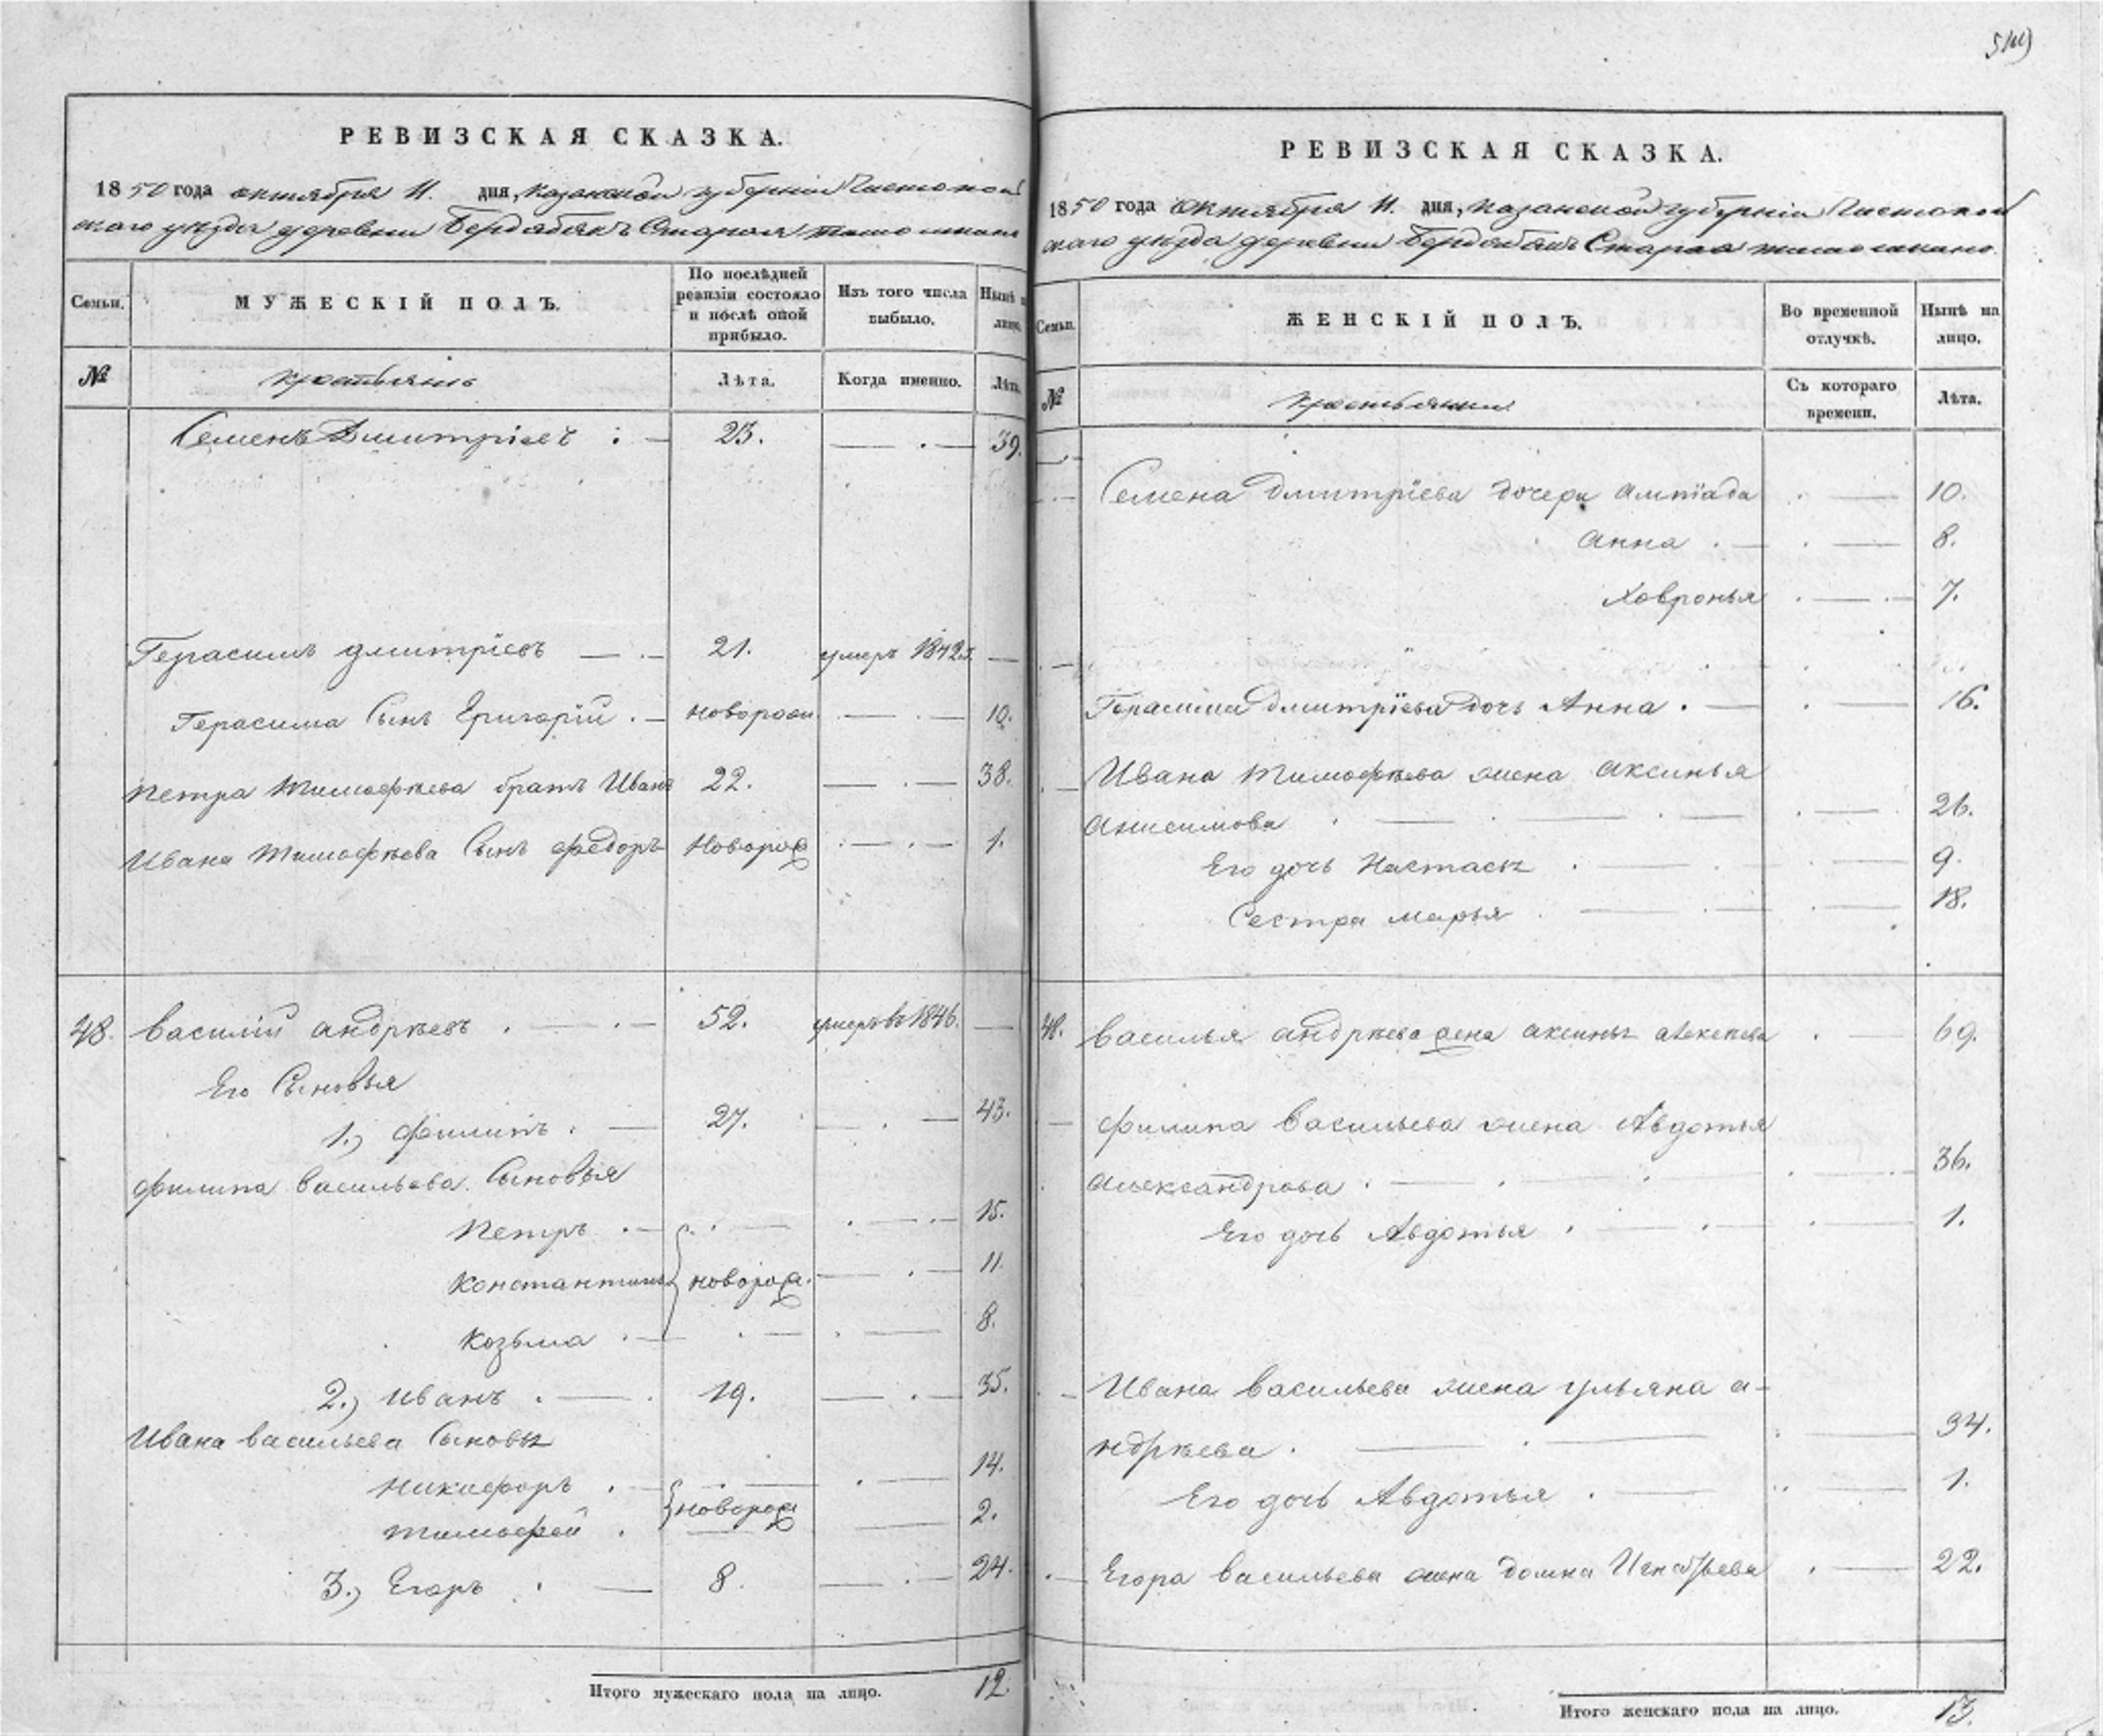 РЕВИЗСКАЯ СКАЗКА.
1850 года октября 11. дня, казанской губернiи Чистополь
скаго уѣзда деревни Бердебякъ Старая
Семьи.
МУЖЕСКІЙ ПОЛЪ.
По послѣдней ревизіи состояло и послѣ оной прибыло.
Изъ того числа выбыло.
Нынѣ на лицо.
№
крестьянъ
Лѣта.
Когда именно.
Лѣта.
Семенъ Дмитріевъ 23. 39.
Герасимъ дмитріевъ 21. умеръ 1842.
Герасима Сынъ Григорій новорож 10.
Петра Тимофѣева братъ Иванъ 22. 38.
Ивана Тимофѣева Сынъ Федоръ Новорож 1.
48. Василій андрѣевъ 52. умеръ въ 1846.
Его Сыновья
1.) Филипъ 27. 43.
Филипа Васильева Сыновья
Петръ 15.
Константинъ новорож. 11.
Козьма 8.
2.) Иванъ 19. 35.
Ивана Васильева Сыновья
Никифоръ 14.
новорож
Тимофей 2.
3.) Егоръ 8. 24.
Итого мужескаго пола на лицо. 12.
РЕВИЗСКАЯ СКАЗКА.
1850 года октября 11. дня, казанской губернiи Чистополь
скаго уѣзда деревни Бердебякъ Старая
Семьи.
ЖЕНСКІЙ ПОЛЪ.
Во временной отлучкѣ.
Нынѣ на лицо.
№
крестьянки
Съ котораго времени.
Лѣта.
Семена Дмитріева дочери Алипіада 10.
Анна 8.
Ховронья 7.
Герасима Дмитріева дочь Анна 16.
Ивана Тимофѣева жена Аксинья
Анисимова 26.
Его дочь Настасья 9.
Сестра Марья 18.
48. Василья андрѣева жена аксинья алексѣева 69.
Филипа Васильева жена Авдотья
Александрова 36.
Его дочь Авдотья 1.
Ивана Васильева жена ульяна а-
ндрѣева 34.
Его дочь Авдотья 1.
Егора Васильева жена Домна Игнатьева 22.
Итого женскаго пола на лицо. 13.